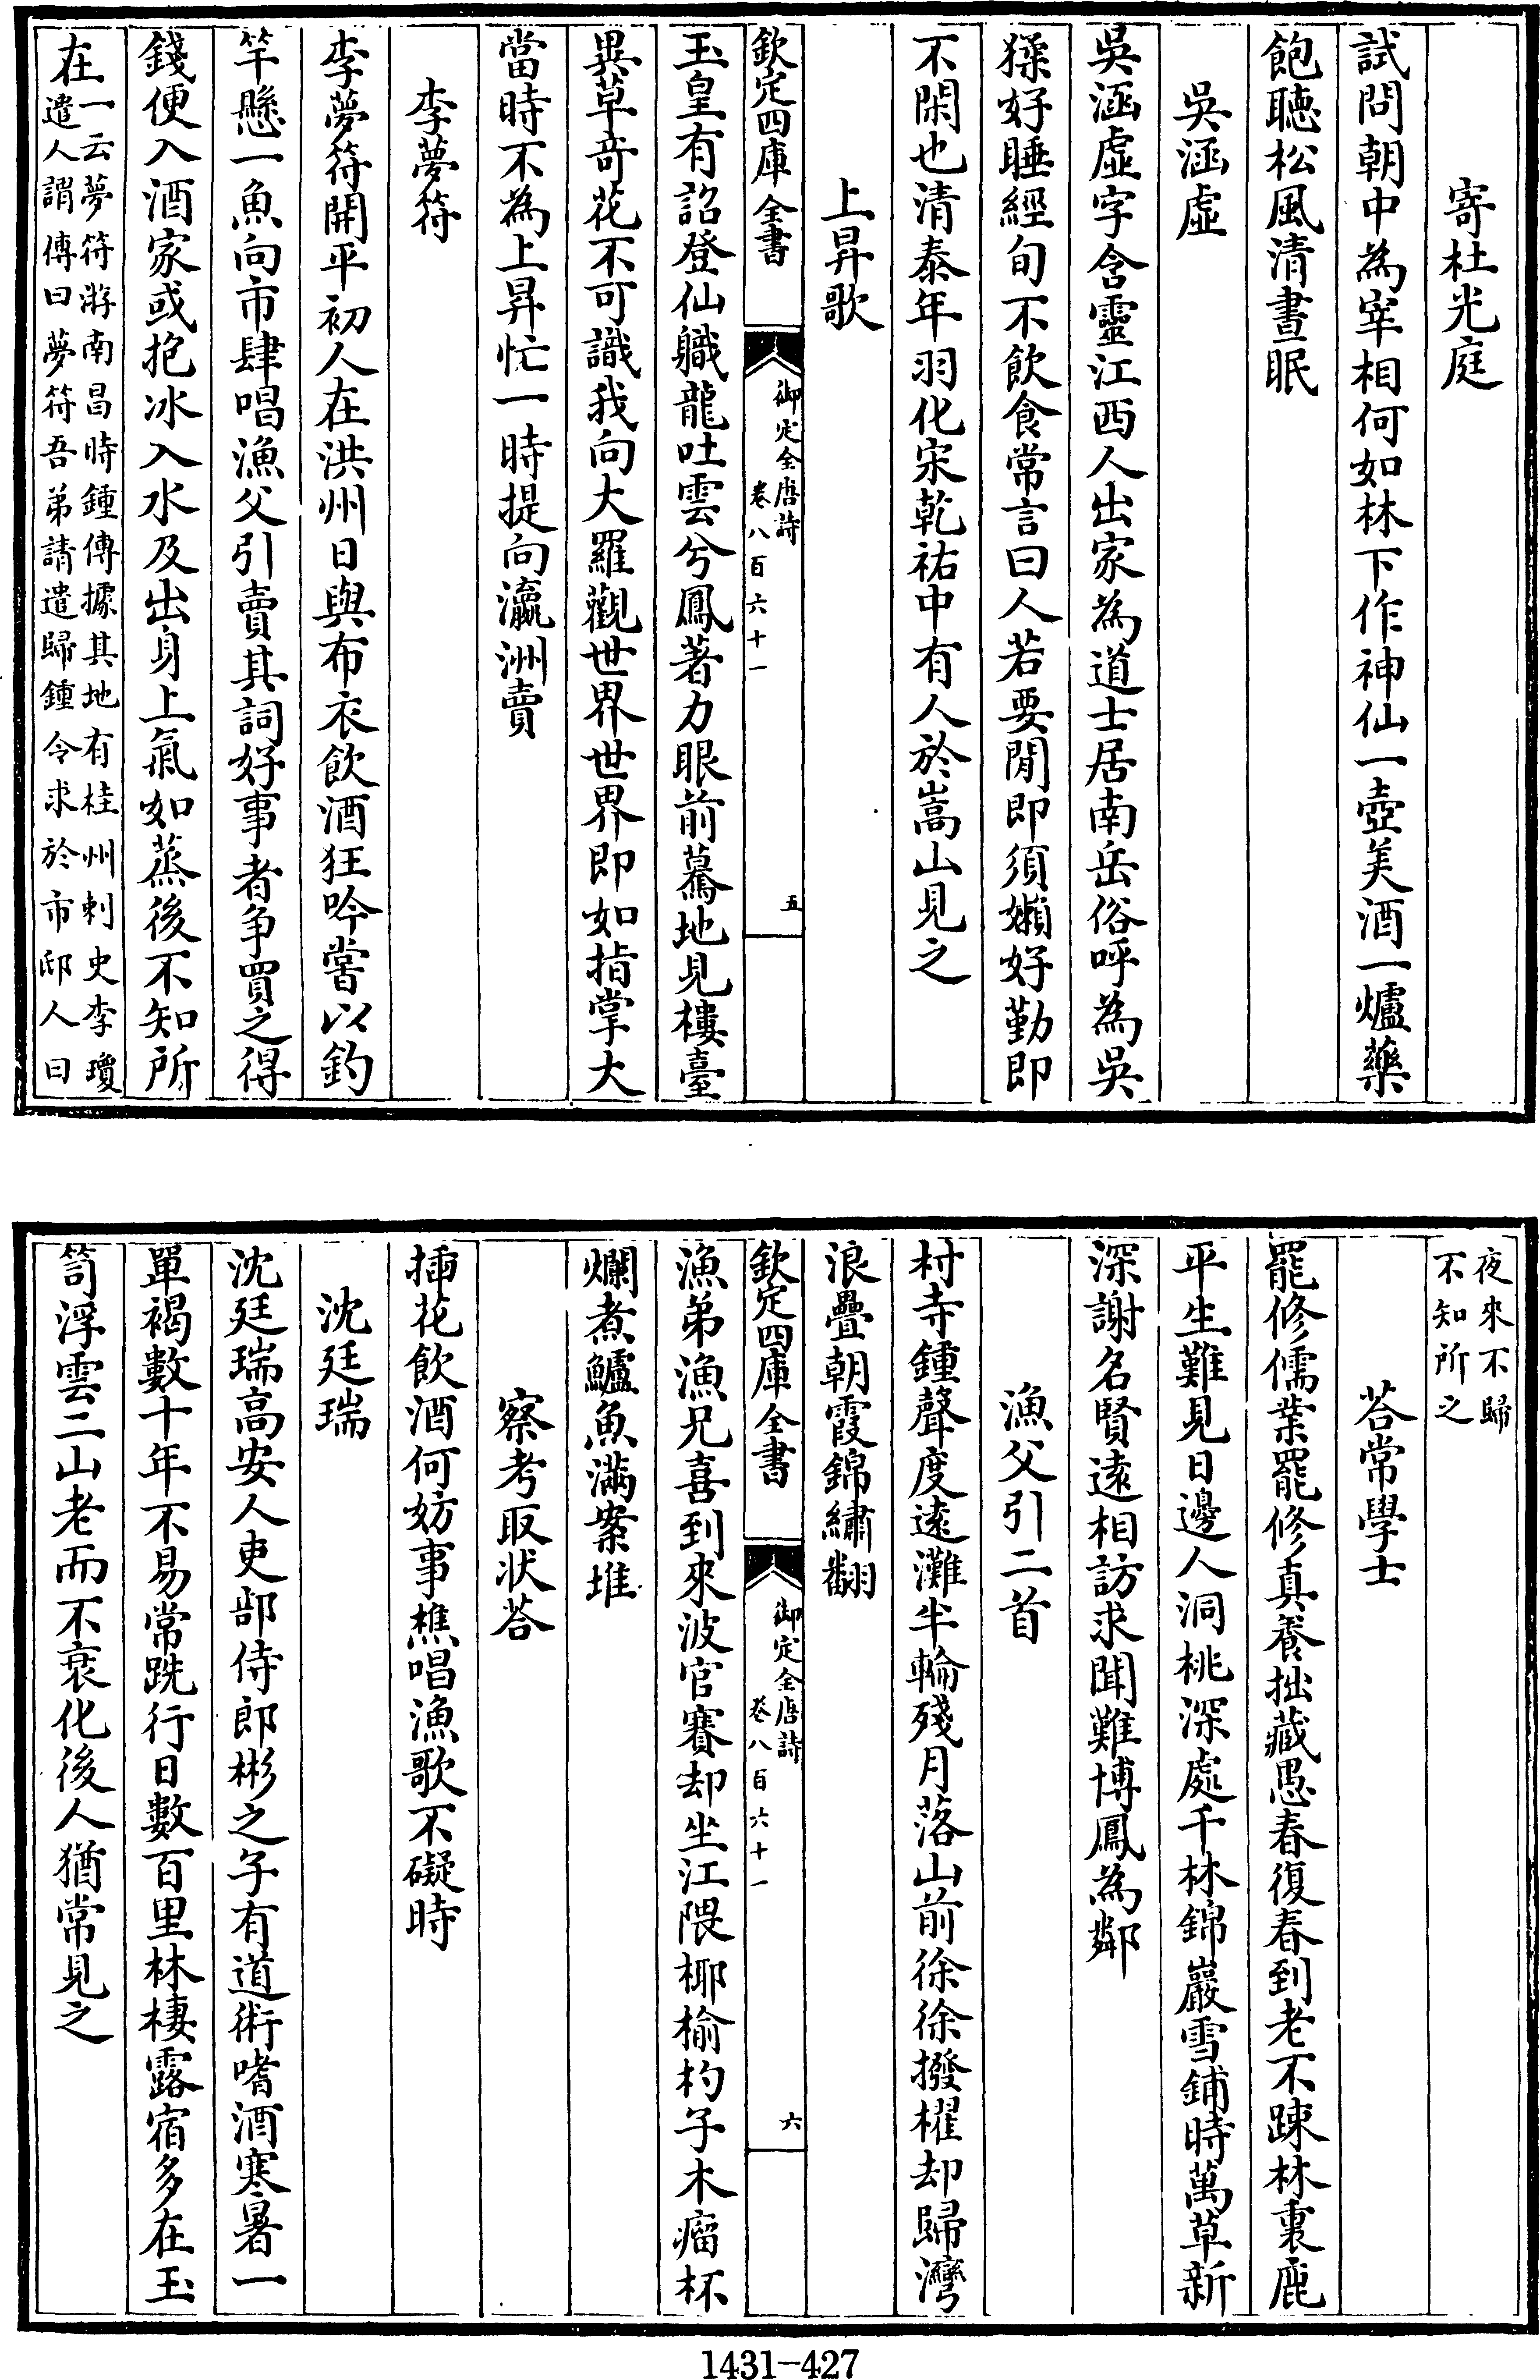 寄杜光庭
試問朝中為宰相何如林下作神仙一壺美酒一爐藥
飽聴松風清晝眠
吳涵虛
吳涵虛字含靈江西人出家為道士居南岳俗呼為吳
猱好睡經旬不飲食常言曰人若要閒即須嬾好勤即
不閑也清泰年羽化宋乾祐中有人於嵩山見之
上昇歌
欽定四庫全書
御定全唐詩
卷八百六十一
五
玉皇有詔登仙職龍吐雲兮鳳著力眼前驀地見樓臺
異草竒花不可識我向大羅觀世界世界即如指掌大
當時不為上昇忙一時提向瀛洲賣
李夢符
李夢符開平初人在洪州日與布衣飲酒狂吟嘗以釣
竿懸一魚向市肆唱漁父引賣其詞好事者争買之得
錢便入酒家或抱冰入水及出身上氣如蒸後不知所
在
一云夢符游南昌時鍾傳據其地有桂州刺史李瓊
遣人謂傳曰夢符吾弟請遣歸鍾令求於市邸人曰
夜來不歸
不知所之
荅常學士
罷修儒業罷修真養拙藏愚春復春到老不踈林裏鹿
平生難見日邊人洞桃深處千林錦巖雪鋪時萬草新
深謝名賢遠相訪求聞難博鳳為鄰
漁父引二首
村寺鍾聲度遠灘半輪殘月落山前徐徐撥櫂却歸灣
浪疊朝霞錦繡翻
欽定四庫全書
御定全唐詩
卷八百六十一
六
漁弟漁兄喜到來波官賽却坐江隈椰榆杓子木瘤杯
爛煮鱸魚滿案堆
察考取狀荅
插花飲酒何妨事樵唱漁歌不礙時
沈廷瑞
沈廷瑞高安人吏部侍郎彬之子有道術嗜酒寒暑一
單褐數十年不易常跣行日數百里林棲露宿多在玉
笥浮雲二山老而不衰化後人猶常見之
1431-427